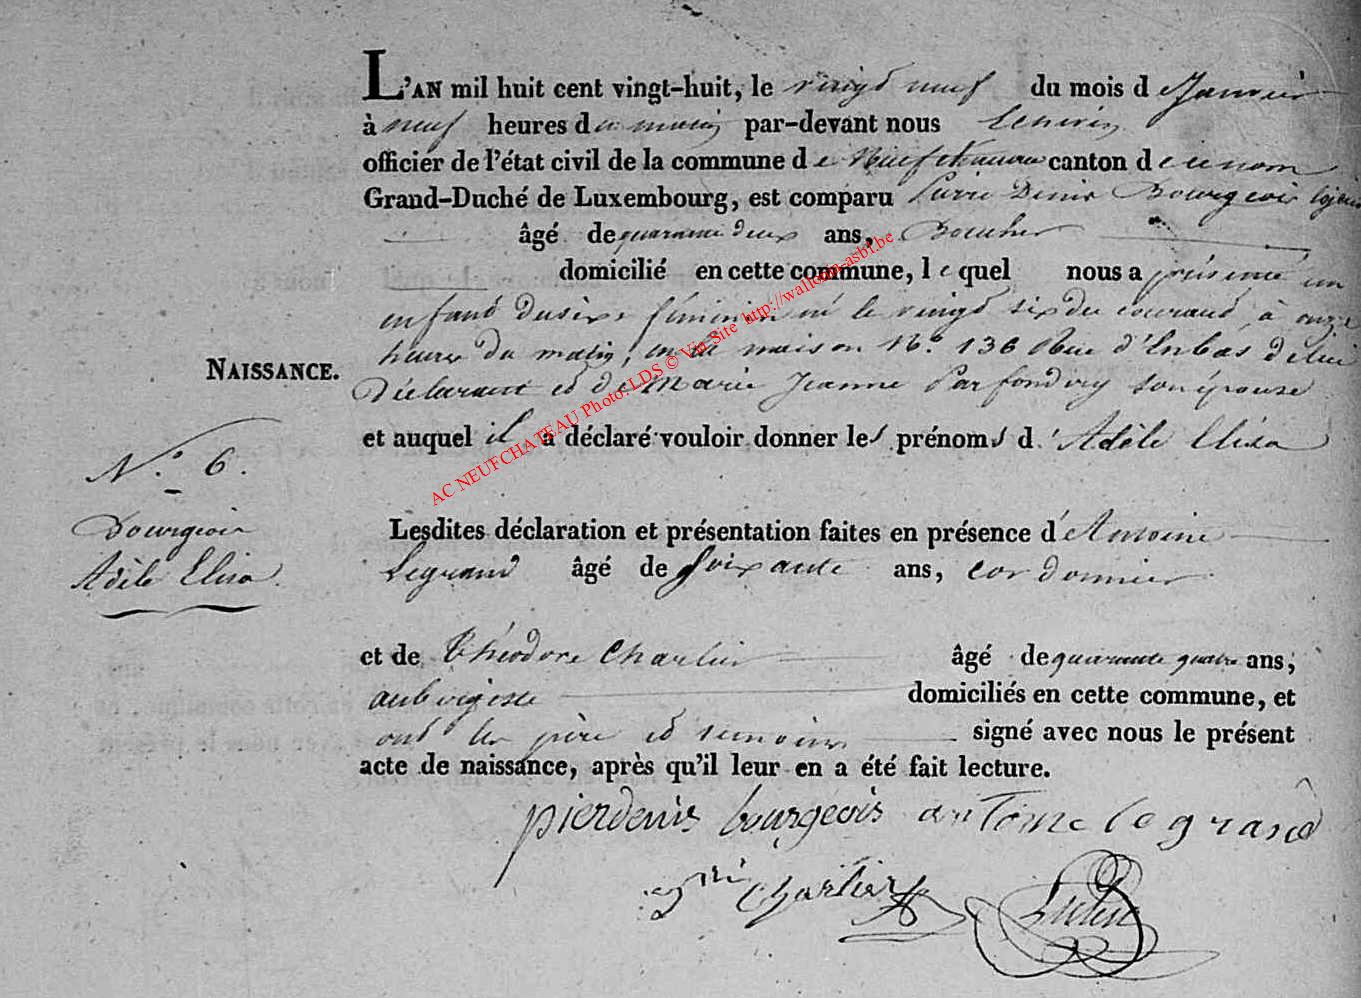 L'AN mil huit cent vingt-huit, le vingt neuf du mois de Janvier
à neuf heures du matin par-devant nous
officier de l'état civil de la commune de Neufchateau canton de ce nom
Grand-Duché de Luxembourg, est comparu Pierre Denis Bourgeois
âgé de quarante deux ans, Boucher
domicilié en cette commune, lequel nous a présenté un
enfant du sexe féminin né le vingt six du courant à onze
heures du matin, en sa maison N.° 136 Rue d'Enbas de lui
NAISSANCE.
Déclarant et de Marie Jeanne Parfondry son épouse
et auquel il a déclaré vouloir donner les prénoms d'Adèle Elisa
N.° 6.
Bourgeois
Adèle Elisa.
Lesdites déclaration et présentation faites en présence d'Antoine
Legrand âgé de soixante ans, cordonnier
et de Théodore Charlier âgé de quarante quatre ans,
aubergiste domiciliés en cette commune, et
ont les père et temoins signé avec nous le présent
acte de naissance, après qu'il leur en a été fait lecture.
pierdenis bourgeois antoine legrand
Charlier
AC NEUFCHATEAU Photo: LDS © Via Site http://wallonia-asbl.be